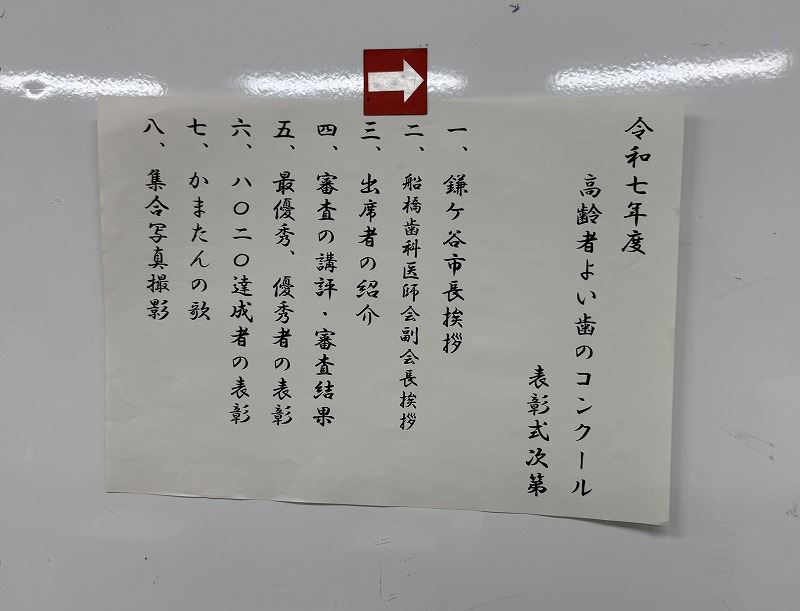 令和七年度
高齢者よい歯のコンクール
表彰式次第
一、鎌ケ谷市長挨拶
二、船橋歯科医師会副会長挨拶
三、出席者の紹介
四、審査の講評・審査結果
五、最優秀、優秀者の表彰
六、八〇二〇達成者の表彰
七、かまたんの歌
八、集合写真撮影